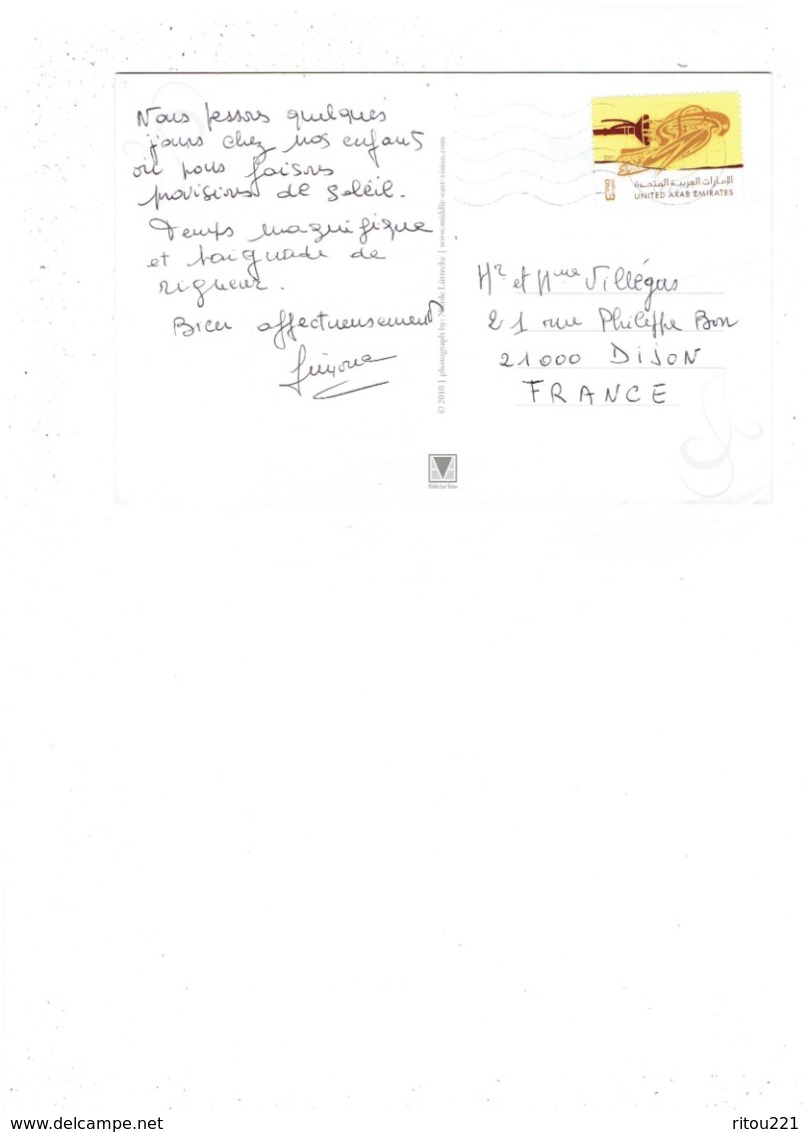 Nous passons quelques
jours chez nos enfants
où nous faisons
provisions de soleil.
Temps magnifique
et baignade de
rigueur.
Bien affectueusement
Simone
© 2010 | photograph by: Nicole Lüttecke | www.middle-east-vision.com
Middle East Vision
الإمارات العربية المتحدة
UNITED ARAB EMIRATES
Mr et Mme Villégas
21 rue Philippe Bon
21000 DIJON
FRANCE
www.delcampe.net
ritou221